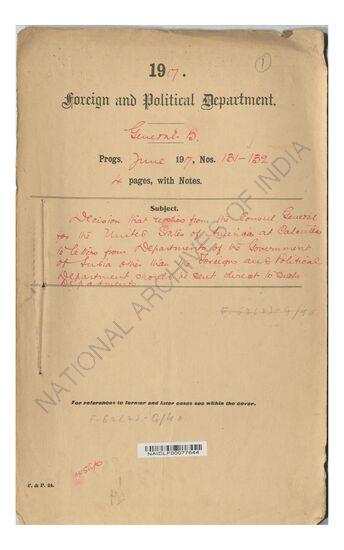 1
1917.
Foreign and Political Department.
General B.
Progs. June 1917. Nos. 131-132
4 pages, with Notes.
Subject.
Decision that replies from the Consul General
for the United States of America at Calcutta
to letters from Departments of the Government
of India other than the Foreign and Political
Department should be sent direct to such
Departments
NATIONAL ARCHIVES OF INDIA
For references to former and later cases see within the cover.
NAIDLF00077644
F. & P. 24.